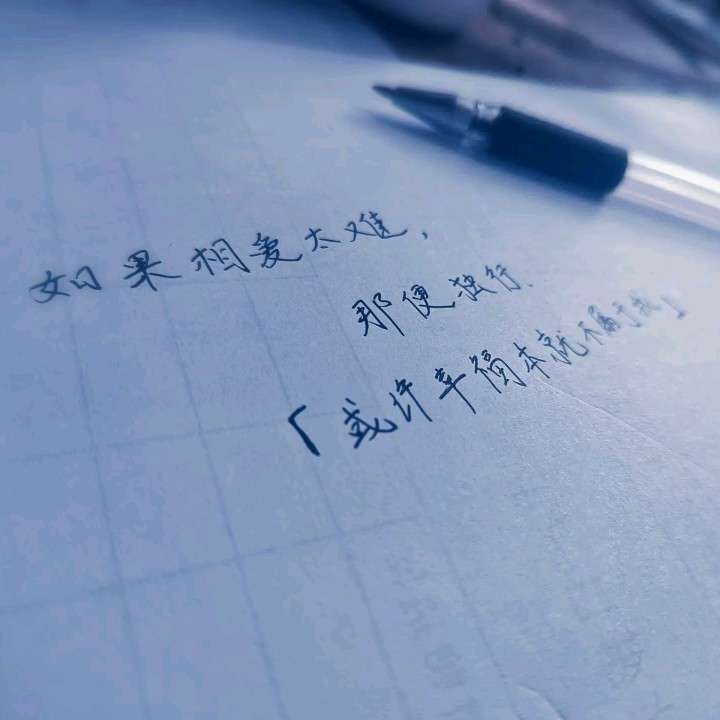 如果相爱太难，
那便独行.
「或许幸福本就不属于我」